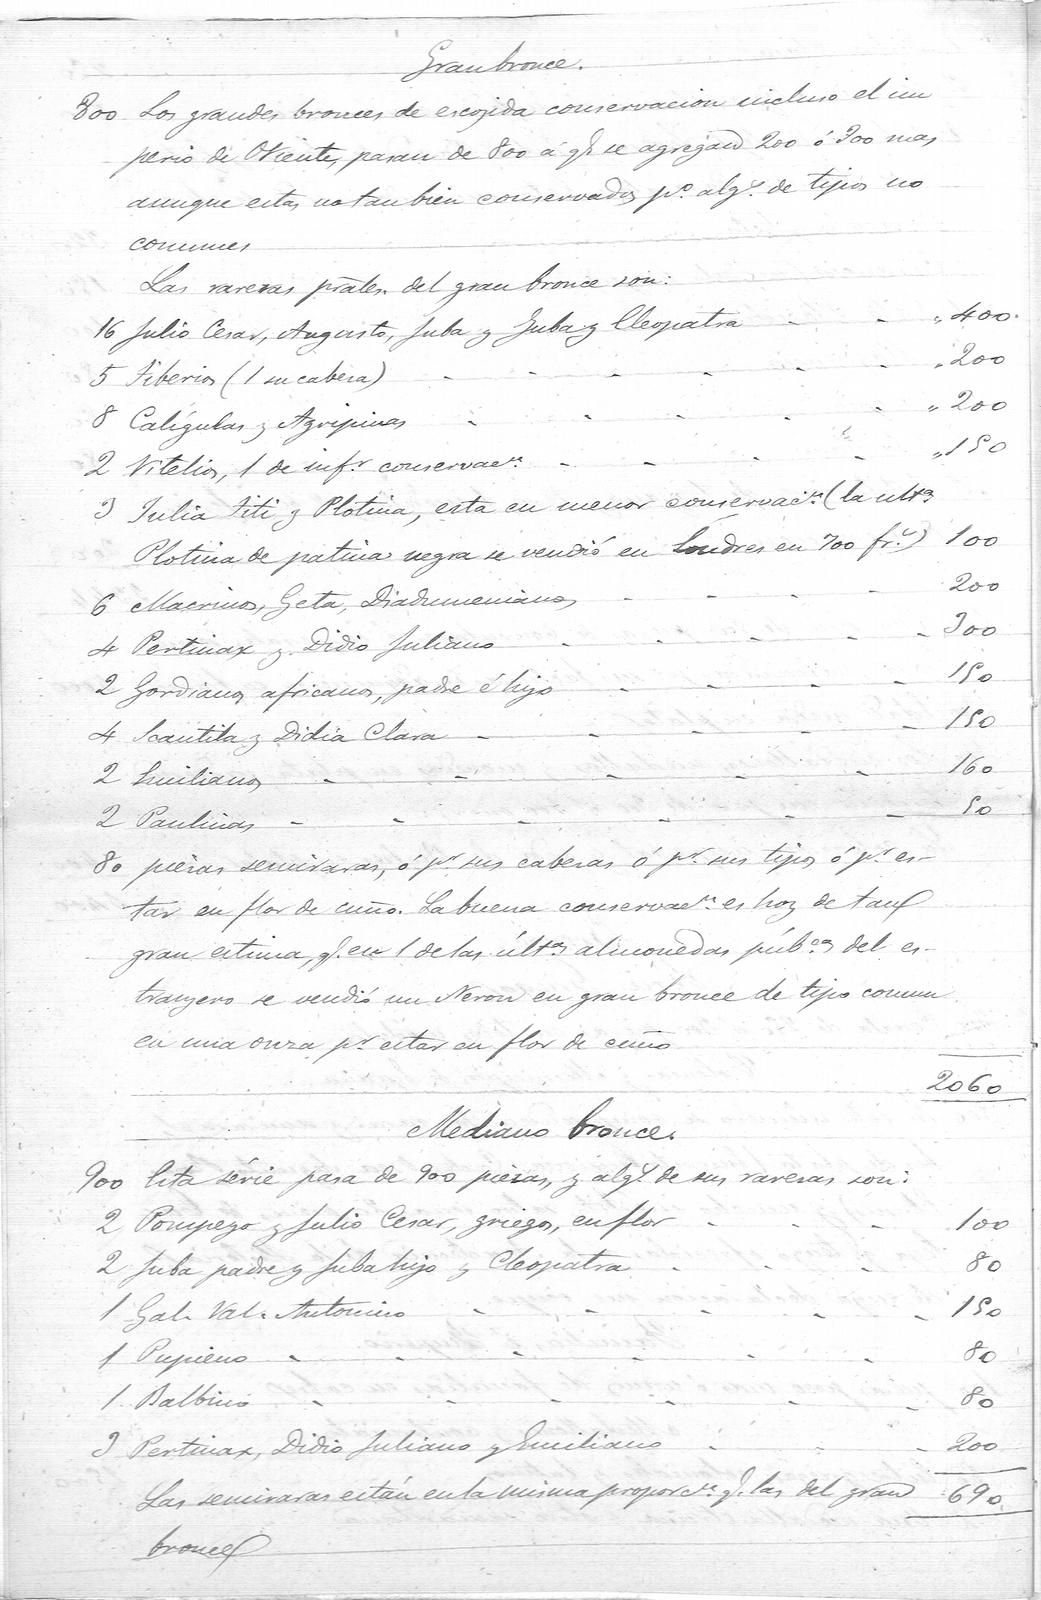 Gran bronce.
800 Los grandes bronces de escojida conservacion incluso el im
perio de Oriente, pasan de 800 á qe. se agregan 200 ó 300 mas
aunque estas no tan bien conservadas po. algs. de tipos no
comunes
Las rarezas prales. del gran bronce son:
16 Julio Cesar, Augusto, Juba y Juba y Cleopatra - - „ 400.
5 Tiberios (1 su cabeza) - - - - - „ 200
8 Calígulas y Agripinas - - - - - „ 200
2 Vitelios, 1 de infr. conservacn. - - - - „ 150
3 Julia Titi y Plotina, esta en menor conservacn. (la ulta.
Plotina de patina negra se vendió en Londres en 700 frs.) 100
6 Macrinos, Geta, Diadumenianos - - - - 200
4 Pertinax y Didio Juliano - - - - 300
2 Gordianos africanos, padre é hijo - - - - 150
4 Scantila y Didia Clara - - - - - 150
2 Emilianos - - - - - 160
2 Paulinas - - - - - - 50
80 piezas semiraras, ó pr. sus cabezas ó pr. sus tipos ó pr. es-
tar en flor de cuño. La buena conservacn. es hoy de tan
gran estima, q. en 1 de las últas. almonedas púbcas. del es-
tranjero se vendió un Neron en gran bronce de tipo comun
en una onza pr. estar en flor de cuño
2060
Mediano bronce.
900 Esta série pasa de 900 piezas, y algs. de sus rarezas son:
2 Pompeyo y Julio Cesar, griegos, en flor - - - 100
2 Juba padre y Juba hijo y Cleopatra - - - 80
1 Gal. Val. Antonino - - - - - 150
1 Pupieno - - - - - - 80
1 Balbino - - - - - - 80
3 Pertinax, Didio Juliano y Emiliano - - - 200
Las semiraras están en la misma proporcn. q. las del gran 690
bronce